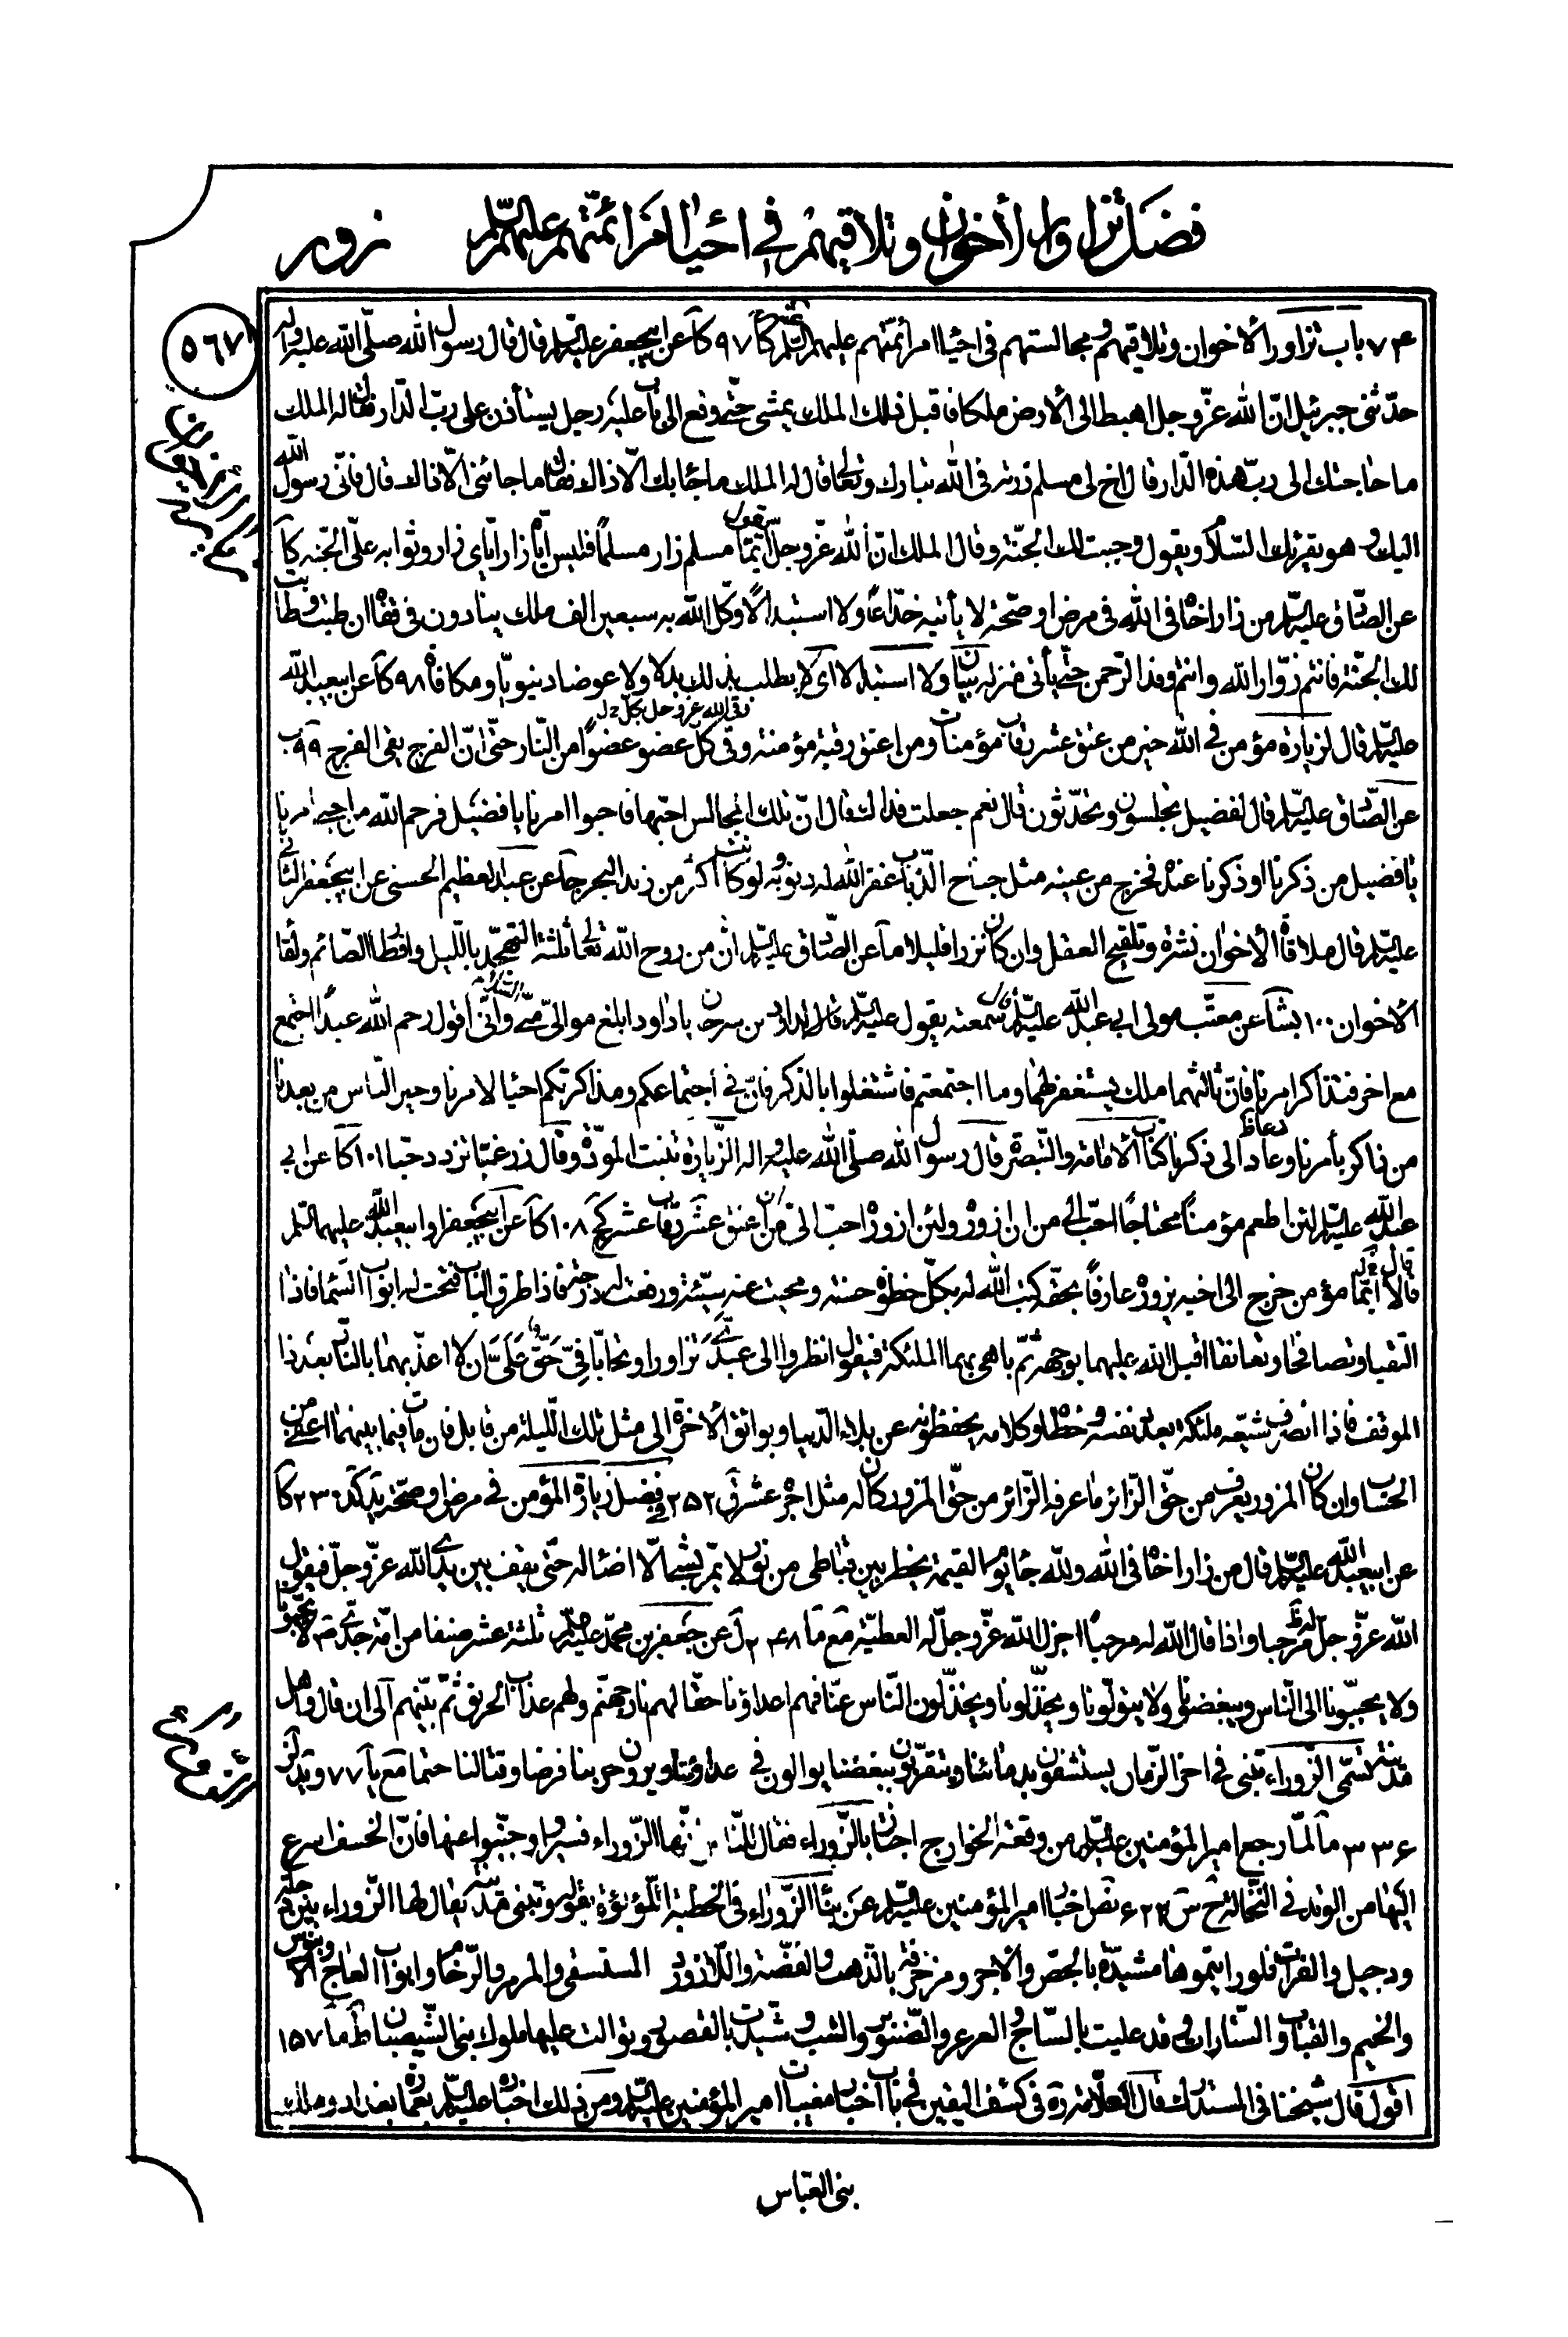 فضل تزاور الأخوان وتلاقيهم في احياء امر ائمتهم عليهم السلم زور
٥٦٧
٧٤ باب تزاور الأخوان وتلاقيهم ومجالستهم فى احياء امر أئمتهم عليهم السلم كا ٩٧ كا عن ابيجعفر عليه السلم قال قال رسول الله صلى الله عليه واله
حدثنى جبرئيل ان الله عز وجل اهبط الى الأرض ملكا فاقبل ذلك الملك يمشى حتى وقع الى باب عليه رجل يستأذن على رب الدار فقال له الملك
ما حاجتك الى رب هذه الدار قال اخ لى مسلم زرته فى الله تبارك وتعالى قال له الملك ما جاء بك الا ذاك فقال ما جائنى الا ذاك قال فانى رسول الله
اليك وهو يقرئك السلام ويقول وجبت لك الجنة وقال الملك ان الله عز وجل يقول ايما مسلم زار مسلما فليس اياه زار اياى زار وثوابه على الجنه كا
عن الصادق عليه السلم من زار اخاه فى الله فى مرض او صحة لا يأتيه خداعا ولا استبدالا وكل الله به سبعين الف ملك ينادون فى قفاه ان طبت وطابت
لك الجنة فانتم زوار الله وانتم وفد الرحمن حتى يأتى منزله بيان ولا استبدالا اى لا يطلب بذلك بدلا ولا عوضا دنيويا ومكافاة ٩٨ كا عن ابيعبد الله
عليه السلم قال لزيارة مؤمن في الله خير من عتق عشر رقاب مؤمنات ومن اعتق رقبة مؤمنة وقى الله عز وجل بكل كل عضو عضوا من النار حتى ان الفرج يقى الفرج ٩٩ ب
عن الصادق عليه السلم قال لفضيل تجلسون وتحدثون قال نعم جعلت فداك قال ان تلك المجالس احبها فاحيوا امرنا يا فضيل فرحم الله من احيى امرنا
يا فضيل من ذكرنا او ذكرنا عنده فخرج من عينه مثل جناح الذباب غفر الله له ذنوبه ولو كانت اكثر من زبد البحر جا عن عبد العظيم الحسنى عن ابيجعفر الثانى
عليه السلم قال ملاقاة الأخوان نشرة وتلقيح العقل وان كان نزرا قليلا ما عن الصادق عليه السلم ان من روح الله تعالى ثلثة التهجد بالليل وافطار الصائم ولقاء
الاخوان ١٠٠ بشا عن معتب مولى ابى عبد الله عليه السلم قال سمعته يقول عليه السلم لداود بن سرحان يا داود ابلغ موالى منى السلام وانى اقول رحم الله عبدا اجتمع
مع اخر فتذاكر امرنا فان ثالثهما ملك يستغفر لهما وما اجتمعتم فاشتغلوا بالذكر فان في اجتماعكم ومذاكرتكم احياء لامرنا وخير الناس من بعدنا
من ذاكر بأمرنا وعاد الى ذكرنا كتاب الامامة والتبصرة قال رسول الله صلى الله عليه واله الزيارة تنبت المودة وقال زر غبا تزدد حبا ١٠١ كا عن ابى
عبد الله عليه السلم لئن اطعم مؤمنا محتاجا احب الى من ان ازوره ولئن ازوره احب الى من ان اعتق عشر رقاب عشر كج ١٠٨ كا عن ابيجعفر او ابيعبد الله عليهما السلم
قالا ايما مؤمن خرج الى اخيه يزوره عارفا بحقه كتب الله له بكل خطوة حسنة ومحيت عنه سيئة ورفعت له درجة فاذا طرق الباب فتحت له ابواب السماء فاذا
التقيا وتصافحا وتعانقا اقبل الله عليهما بوجهه ثم باهى بهما الملئكة فيقول انظروا الى عبدى تزاورا وتحابا فى حق على ان لا اعذبهما بالنار بعد ذا
الموقف فاذا انصرف شيعه ملئكة بعدد نفسه وخطاه وكلامه يحفظونه عن بلاء الدنيا وبوائق الأخرة الى مثل تلك الليلة من قابل فان مات فيما بينهما اعفى من
الحساب وان كان المزور يعرف من حق الزائر ما عرفه الزائر من حق المزور كان له مثل اجره عشر ٢٥٢ فضل زيارة المؤمن في مرض او صحة ٢٣٠ كا
عن ابيعبد الله عليه السلم قال من زار اخاه فى الله ولله جاء يوم القيمة يخطر بين قباطى من نور لا يمر بشىء الا اضاء له حتى يقف بين يدى الله عز وجل فيقول
الله عز وجل له مرحبا واذا قال الله له مرحبا اجزل الله عز وجل له العطية مع ما ٢٤٨ ل عن جعفر بن محمد عليه السلم ثلثة عشر صنفا من امة جدى لا يحبونا
ولا يحببونا الى الناس ويبغضونا ولا يتولونا ويخذلونا ويخذلون الناس عنا فهم اعداؤنا حقا لهم نار جهنم ولهم عذاب الحريق ثم بينهم الى ان قال واهل
مدينة تسمى الزوراء تبنى في اخر الزمان يستشفون بدمائنا ويتقربون ببغضنا يوالون في عداوتنا ويرون حربنا فرضا وقتالنا حتما مع يا ٧٧
٣٣٦ ما لما رجع امير المؤمنين عليه السلم من وقعة الخوارج اجتاز بالزوراء فقال للناس انها الزوراء فسيروا وجنبوا عنها فان الخسف اسرع
اليها من الوتد فى النخالة ٦٢٢ اخبار امير المؤمنين عليه السلم عن بناء الزوراء فى الخطبة اللؤلؤية بقوله وتبنى مدينة يقال لها الزوراء بين دجلة
ودجيل والفرات فلو رايتموها مشيدة بالجص والاجر ومزخرفة بالذهب والفضة واللازورد المستسقى والمرمر والرخام وابواب العاج
والخيم والقباب والستارات وقد عليت بالساج والعرعر والصنوبر والشب وشيدت بالقصور وتوالت عليها ملوك بنى الشيصبان ط ما ١٥٧
اقول قال شيخنا فى المستدرك قال العلامة ره فى كشف اليقين في باب اخبار مغيبات امير المؤمنين عليه السلم ومن ذلك اخباره عليه السلم بعمارة بغداد وملك
بنى العباس